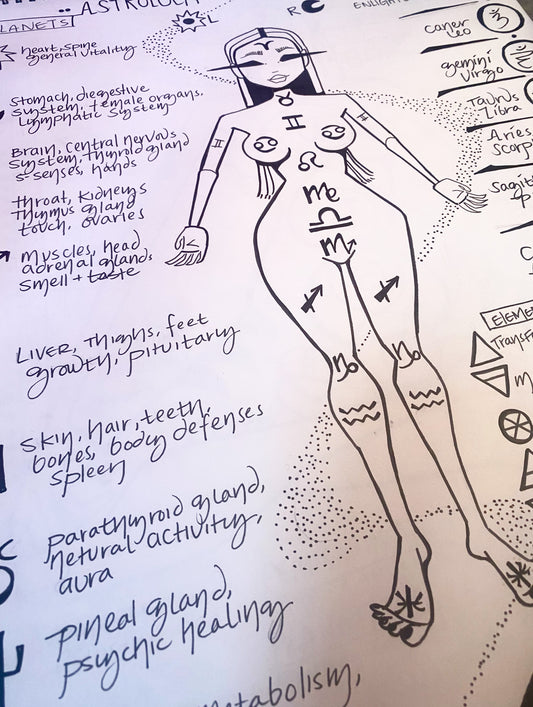 ASTROLOGY
PLANETS
L
R
heart, spine
general vitality
Stomach, diegestive
system, female organs,
Lymphatic System
Brain, central nervous
system, thyroid gland
5-senses, hands
throat, kidneys
thymus gland
touch, ovaries
muscles, head
adrenal glands
smell + taste
LIVER, Thighs, feet
growth, pituitary
Skin, hair, teeth,
bones, body defenses
spleen
parathyroid gland,
netural activity,
aura
pineal gland,
psychic healing
metabolism,
cancer
Leo
gemini
virgo
Taurus
Libra
Aries
Scorp
Sagit